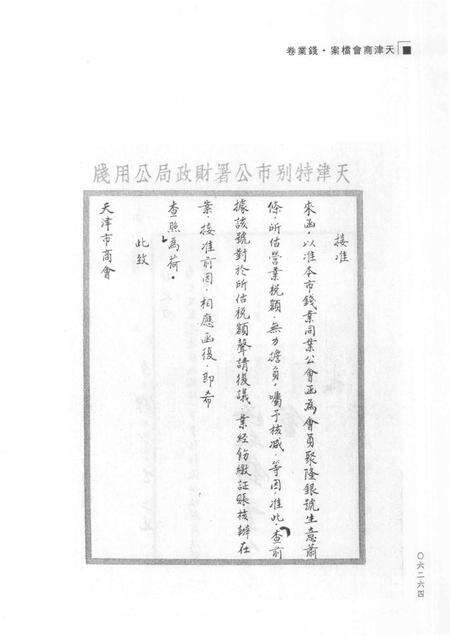 天津商會檔案·錢業卷
天津特别市公署財政局公用牋
接准
來函，以准本市錢業同業公會函為會員聚隆銀號生意蕭
條，所估營業稅額，無力擔負，囑予核减，等因准此，查前
據該號對於所估稅額聲請復議，業經飭繳証賬核辦在
案，接准前因，相應函復，即希
查照為荷。
此致
天津市商會
〇六二六四